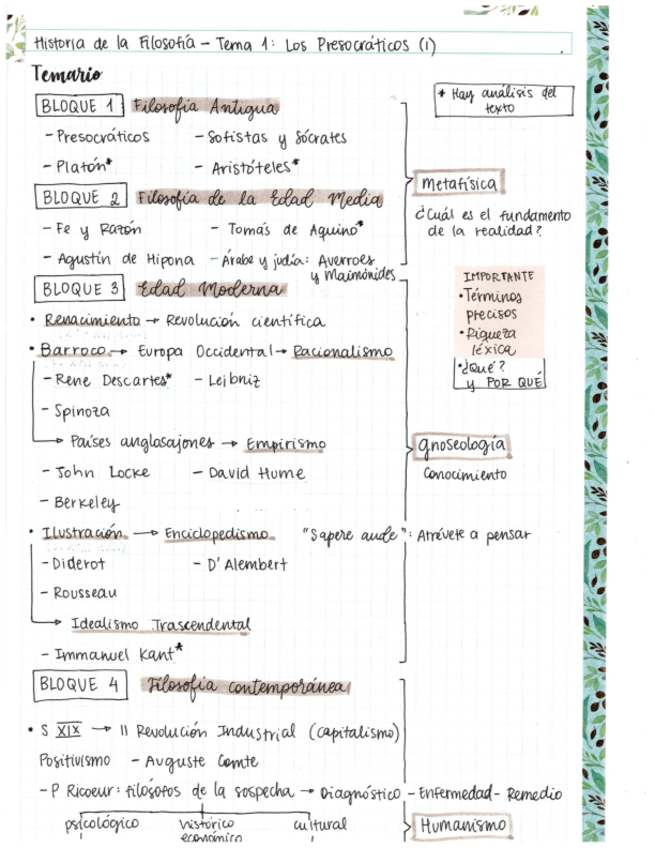 Historia de la Filosofía - Tema 1: Los Presocráticos (1)
Temario
* Hay análisis del
texto
BLOQUE 1 Filosofía Antigua
- Presocráticos - Sofistas y Sócrates
- Platón* - Aristóteles*
Metafísica
¿Cuál es el fundamento
de la realidad?
BLOQUE 2 Filosofía de la Edad Media
- Fe y Razón - Tomás de Aquino*
- Agustín de Hipona - Árabe y judía: Averroes
y Maimónides
BLOQUE 3 Edad Moderna
IMPORTANTE
• Términos
precisos
• Riqueza
léxica
• ¿Qué?
y POR QUÉ
• Renacimiento → Revolución científica
• Barroco → Europa Occidental → Racionalismo
- Rene Descartes* - Leibniz
- Spinoza
→ Países anglosajones → Empirismo
gnoseología
conocimiento
- John Locke - David Hume
- Berkeley
• Ilustración → Enciclopedismo "Sapere aude": Atrévete a pensar
- Diderot - D'Alembert
- Rousseau
→ Idealismo Trascendental
- Immanuel Kant*
BLOQUE 4 Filosofía contemporánea
• S XIX → II Revolución Industrial (capitalismo)
Positivismo - Auguste Comte
- P Ricoeur: filósofos de la sospecha → Diagnóstico - Enfermedad - Remedio
psicológico histórico cultural
económico
Humanismo